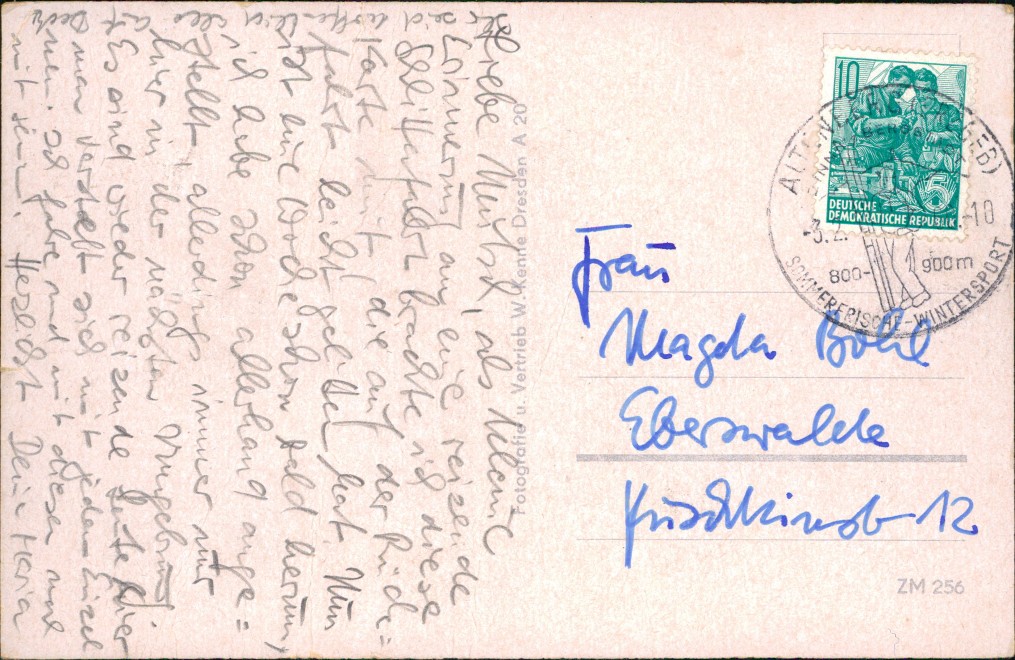 Liebe Mutsch, als kleine
Erinnerung an eine reizende
Schlittenfahrt brachte ich diese
Karte mit, die auf der Rück=
fahrt leicht gelitten hat. Nun
ist eine Woche schon bald herum,
ich habe schon allerhand ange=
stellt, allerdings immer nur
hier in der nächsten Umgebung.
Es sind wieder reizende Leute hier
man versteht sich mit jedem
mit
mit Herzlichst Deine
Fotografie u. Vertrieb W. Kenne Dresden A 20
10
DEUTSCHE
DEMOKRATISCHE REPUBLIK
5
ALTENBERG (ERZGEB)
-3.2. -10
800- 900m
SOMMERFRISCHE-WINTERSPORT
Frau
Magda Bohl
Eberswalde
12
ZM 256